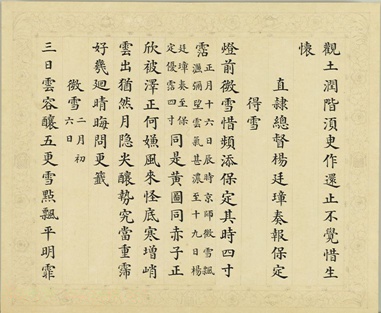 觀土潤階須臾作還止不覺惜生
懷
直隸總督楊廷璋奏報保定
得雪
燈前微雪惜頻添保定其時四寸
霑正月十六日辰時京師微雪飄
灑彌望雲氣甚濃至十九日楊
廷璋奏至保
定優霑四寸同是黃圖同赤子正
欣被澤正何嫌風來怪底寒增峭
雲出猶然月隐尖釀勢究當重霈
好幾迴晴晦問更籤
微雪二月初
六日
三日雲容釀五更雪點飄平明霏